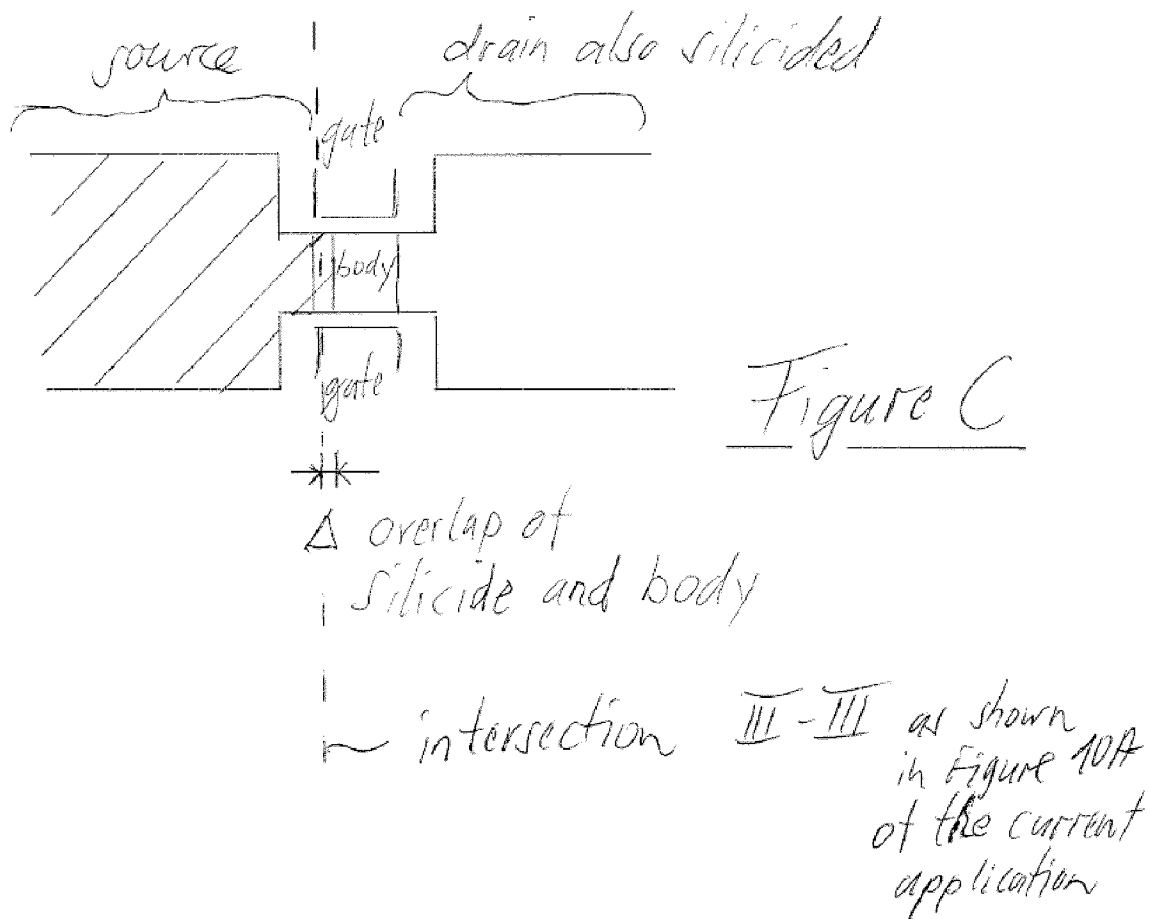 source
drain also silicided
gate
body
gate
Figure C
Δ overlap of
silicide and body
intersection III-III as shown
in Figure 10A
of the current
application